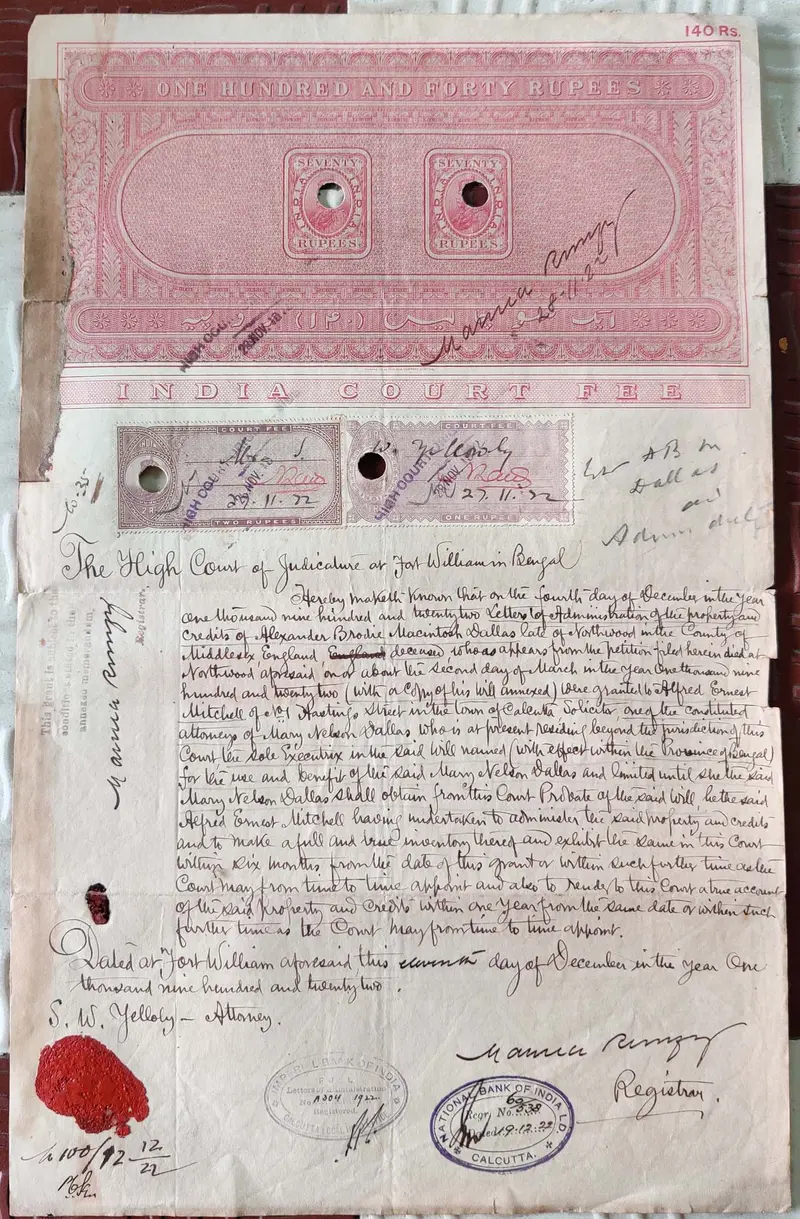 140 Rs.
ONE HUNDRED AND FORTY RUPEES
SEVENTY SEVENTY
INDIA INDIA INDIA INDIA
RUPEES RUPEES
28.11.22
HIGH COURT
28 NOV.
INDIA COURT FEE
COURT FEE COURT FEE
W. Yelloly
HIGH COURT HIGH COURT
27.11.22 27.11.22
TWO RUPEES ONE RUPEE
Dallas
The High Court of Judicature at Fort William in Bengal
Hereby maketh known that on the fourth day of December in the Year
One thousand nine hundred and twenty two Letters of Administration of the property and
credits of Alexander Brodie Macintosh Dallas late of Northwood in the County of
Middlesex England England deceased who as appears from the petition filed herein died at
Northwood aforesaid on or about the second day of March in the year One thousand nine
hundred and twenty two (with a copy of his will annexed) were granted to Alfred Ernest
Mitchell of Hastings Street in the town of Calcutta Solicitor, one of the constituted
attorneys of Mary Nelson Dallas, who is at present residing beyond the jurisdiction of this
Court the sole Executrix in the said Will named (with effect within the Province of Bengal)
for the use and benefit of the said Mary Nelson Dallas and limited until she the said
Mary Nelson Dallas shall obtain from this Court Probate of the said Will, he the said
Alfred Ernest Mitchell having undertaken to administer the said property and credits
and to make a full and true inventory thereof and exhibit the same in this Court
within six months from the date of this grant or within such further time as the
Court may from time to time appoint and also to render to this Court a true account
of the said Property and Credits within one Year from the same date or within such
further time as the Court may from time to time appoint.
Dated at Fort William aforesaid this eleventh day of December in the Year One
thousand nine hundred and twenty two.
This grant is
annexed memorandum.
Registrar.
S. W. Yelloly – Attorney.
Registrar.
IMPERIAL BANK OF INDIA
Letters of Administration
No. A304 1922
Registered.
NATIONAL BANK OF INDIA LD.
Regr. No.
Dated 19.12.22
CALCUTTA.